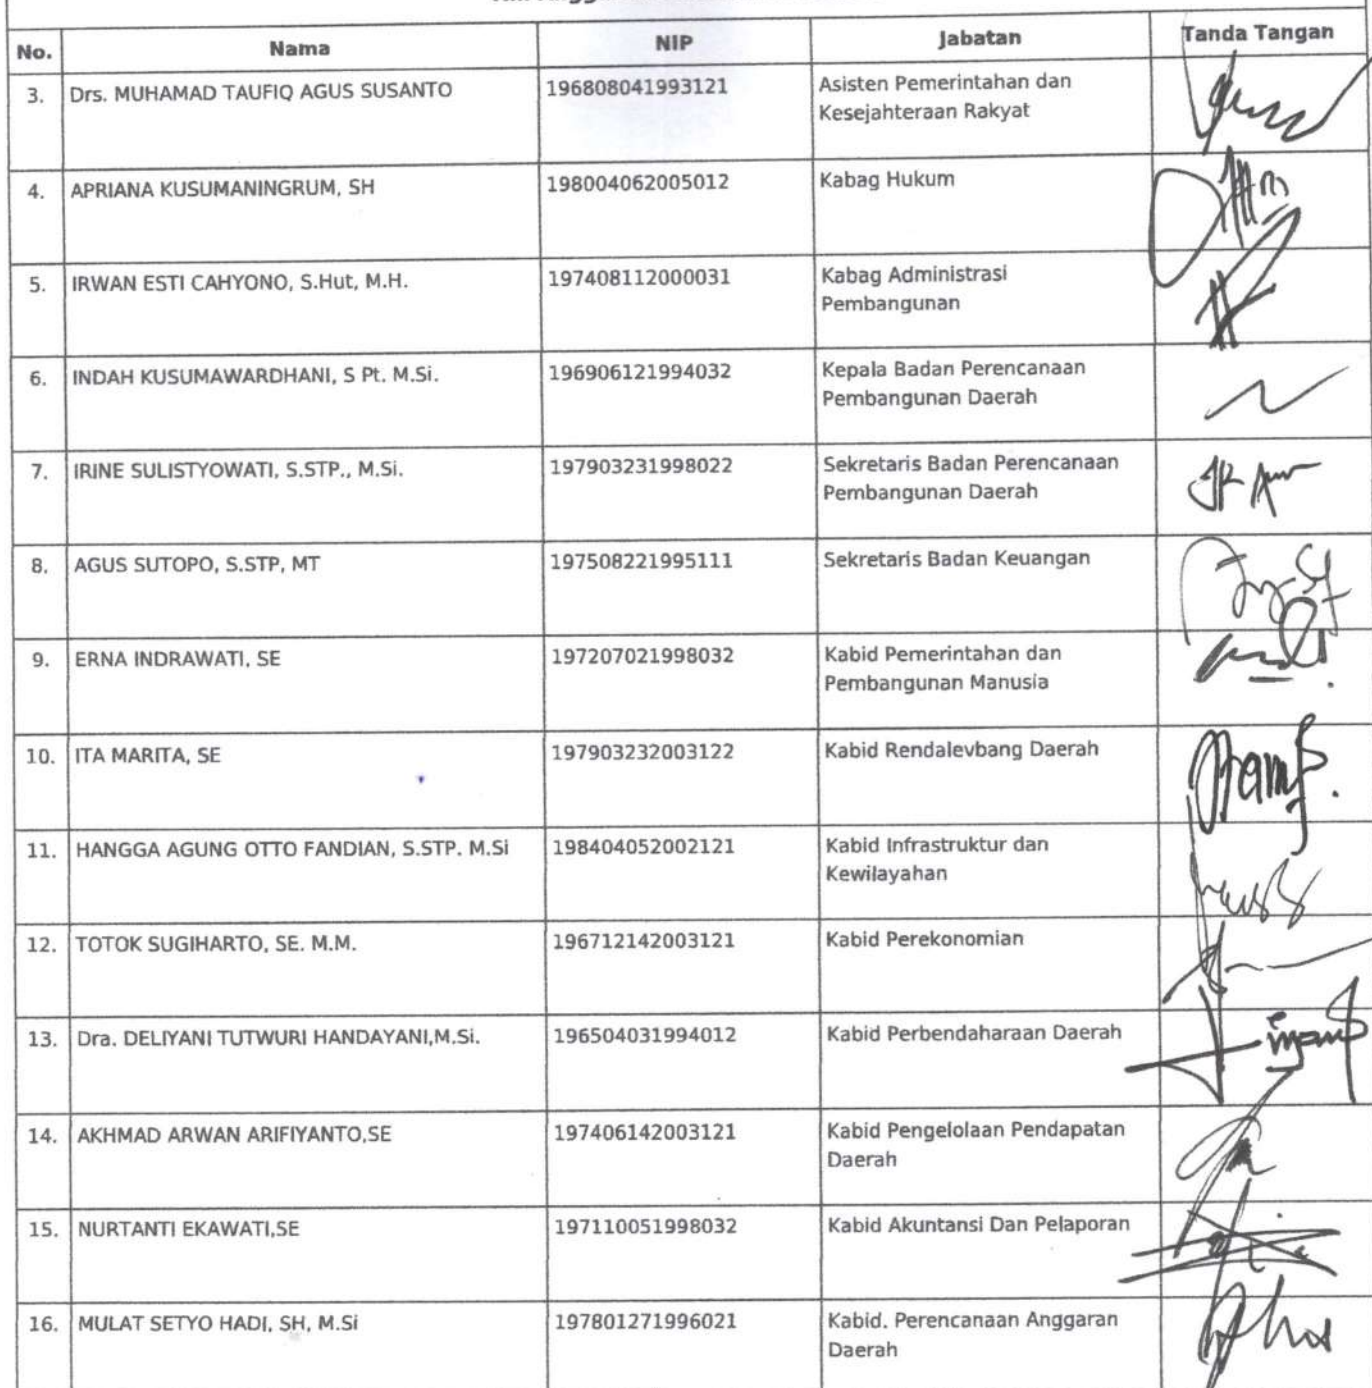 No. Nama NIP Jabatan Tanda Tangan
3. Drs. MUHAMAD TAUFIQ AGUS SUSANTO 196808041993121 Asisten Pemerintahan dan
Kesejahteraan Rakyat
4. APRIANA KUSUMANINGRUM, SH 198004062005012 Kabag Hukum
5. IRWAN ESTI CAHYONO, S.Hut, M.H. 197408112000031 Kabag Administrasi
Pembangunan
6. INDAH KUSUMAWARDHANI, S Pt. M.Si. 196906121994032 Kepala Badan Perencanaan
Pembangunan Daerah
7. IRINE SULISTYOWATI, S.STP., M.Si. 197903231998022 Sekretaris Badan Perencanaan
Pembangunan Daerah
8. AGUS SUTOPO, S.STP, MT 197508221995111 Sekretaris Badan Keuangan
9. ERNA INDRAWATI, SE 197207021998032 Kabid Pemerintahan dan
Pembangunan Manusia
10. ITA MARITA, SE 197903232003122 Kabid Rendalevbang Daerah
11. HANGGA AGUNG OTTO FANDIAN, S.STP. M.Si 198404052002121 Kabid Infrastruktur dan
Kewilayahan
12. TOTOK SUGIHARTO, SE. M.M. 196712142003121 Kabid Perekonomian
13. Dra. DELIYANI TUTWURI HANDAYANI,M.Si. 196504031994012 Kabid Perbendaharaan Daerah
14. AKHMAD ARWAN ARIFIYANTO,SE 197406142003121 Kabid Pengelolaan Pendapatan
Daerah
15. NURTANTI EKAWATI,SE 197110051998032 Kabid Akuntansi Dan Pelaporan
16. MULAT SETYO HADI, SH, M.Si 197801271996021 Kabid. Perencanaan Anggaran
Daerah